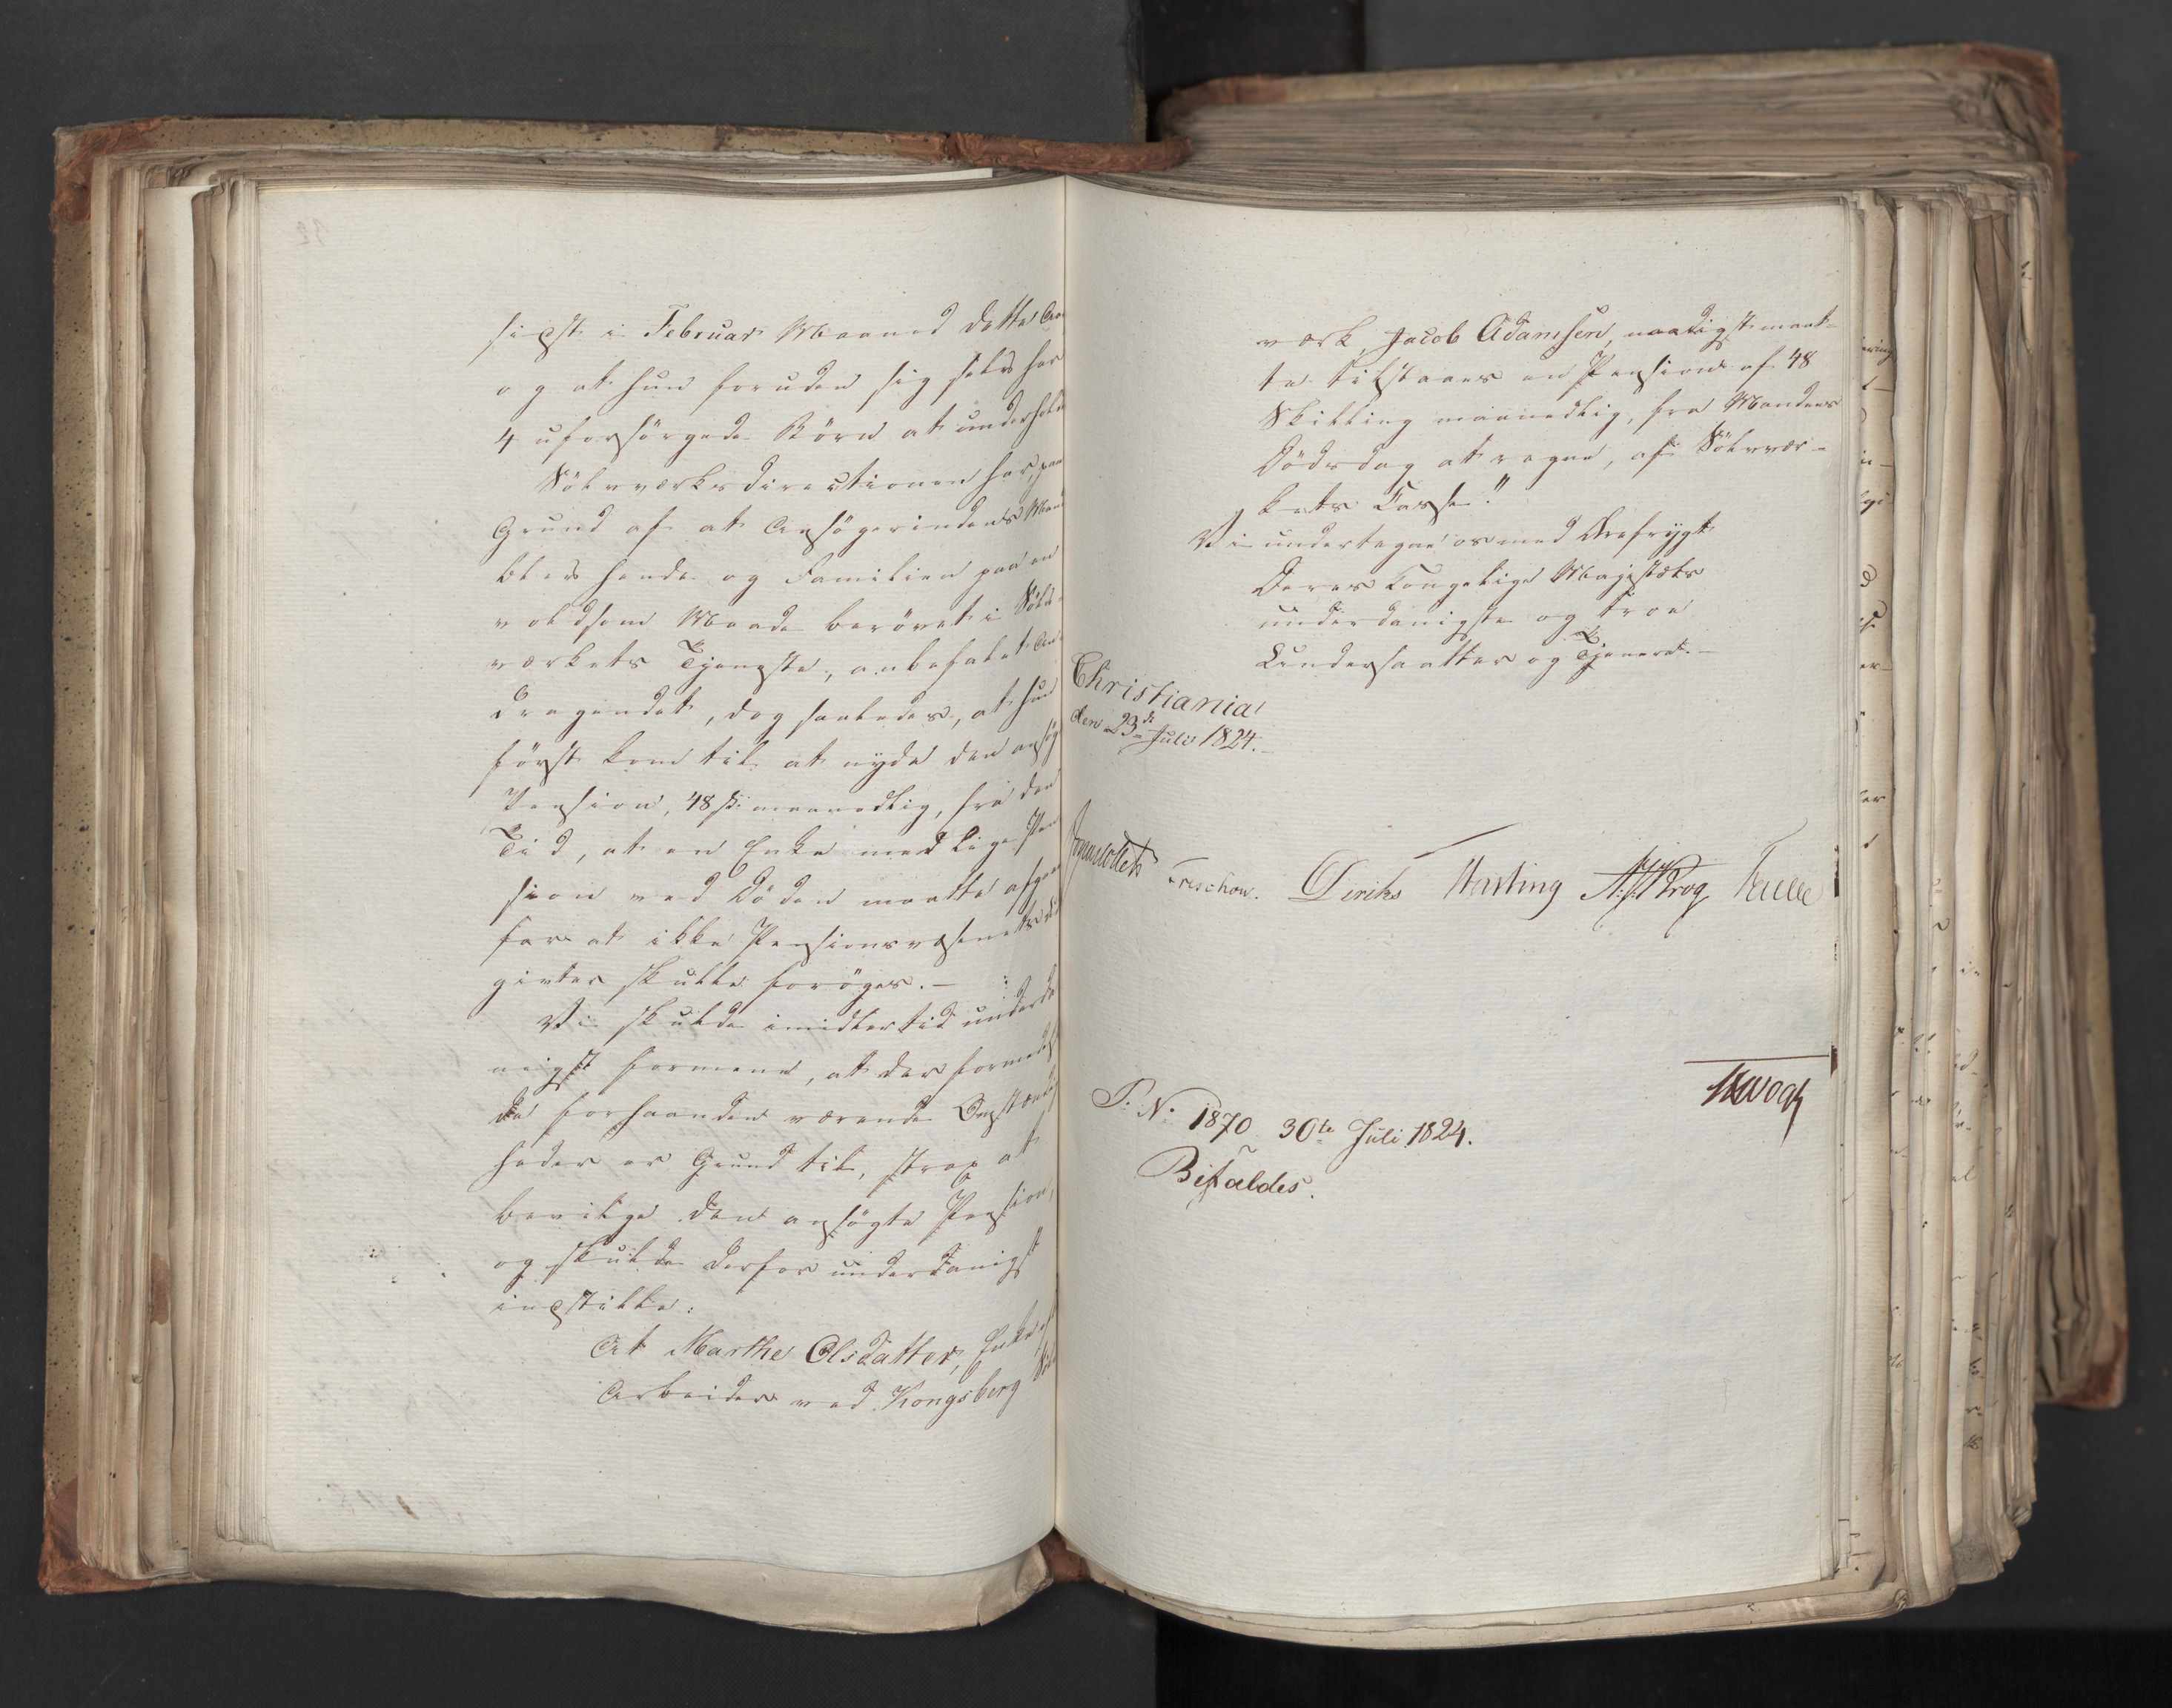 sidst i Februar Maaned dette Aar
og at hun foruden sig selv har
4 uforsörgede Börn at underholde
Sölvværksdirectionen har, paa
Grund af at Ansögerindens Mand
blev hende og Familien paa en
voldsom Maade berövet i Sölv-
værkets Tjeneste, anbefalet An-
dragendet, dog saaledes, at hun
först kom til at nyde den ansögte
Pension, 48 s. maanedlig, fra den
Tid, at en Enke med lige Pen
sion ved Döden maatte afgaae
for at ikke Pensionsvæsenets Ud
givter skulle foröges. —
Vi skulde imidlertid underda
nigst formene, at der formedelst
de forhaanden værende Omstændig
heder er Grund til, strax at
bevilge den ansögte Pension,
og skulde derfor underdanigst
indstille:
At Marthe Olsdatter, Enke af
Arbeider ved Kongsberg Sölv
værk, Jacob Adamsen, naadigst maat-
te tilstaaes en Pension af 48
Skilling maanedlig, fra Mandens
Dödsdag at regne, af Sölvvær-
kets Casse."
Vi undertegne os med Ærefrygt
Deres Kongelige Majestæts
underdanigste og troe
Undersaatter og Tjenere. —
Christiania
den 23de Juli 1824. —
Sommerhielm Treschow. Diriks Hersting A. J. Krog Krog
S. N. 1870 30te Juli 1824.
Bifaldes.